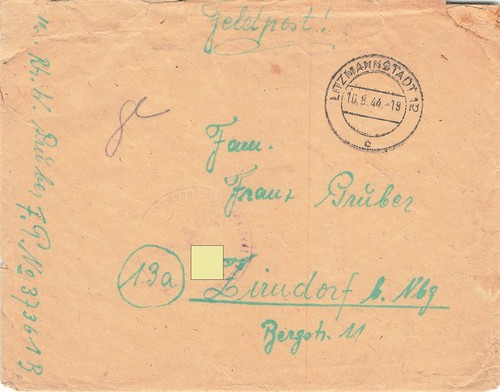 Feldpost!
LITZMANNSTADT 12
10.8.44.-18
c
Fam.
Franz Gruber
13a
Zirndorf b. Nbg
Bergstr. 11
Gruber F.P. No 37361 B